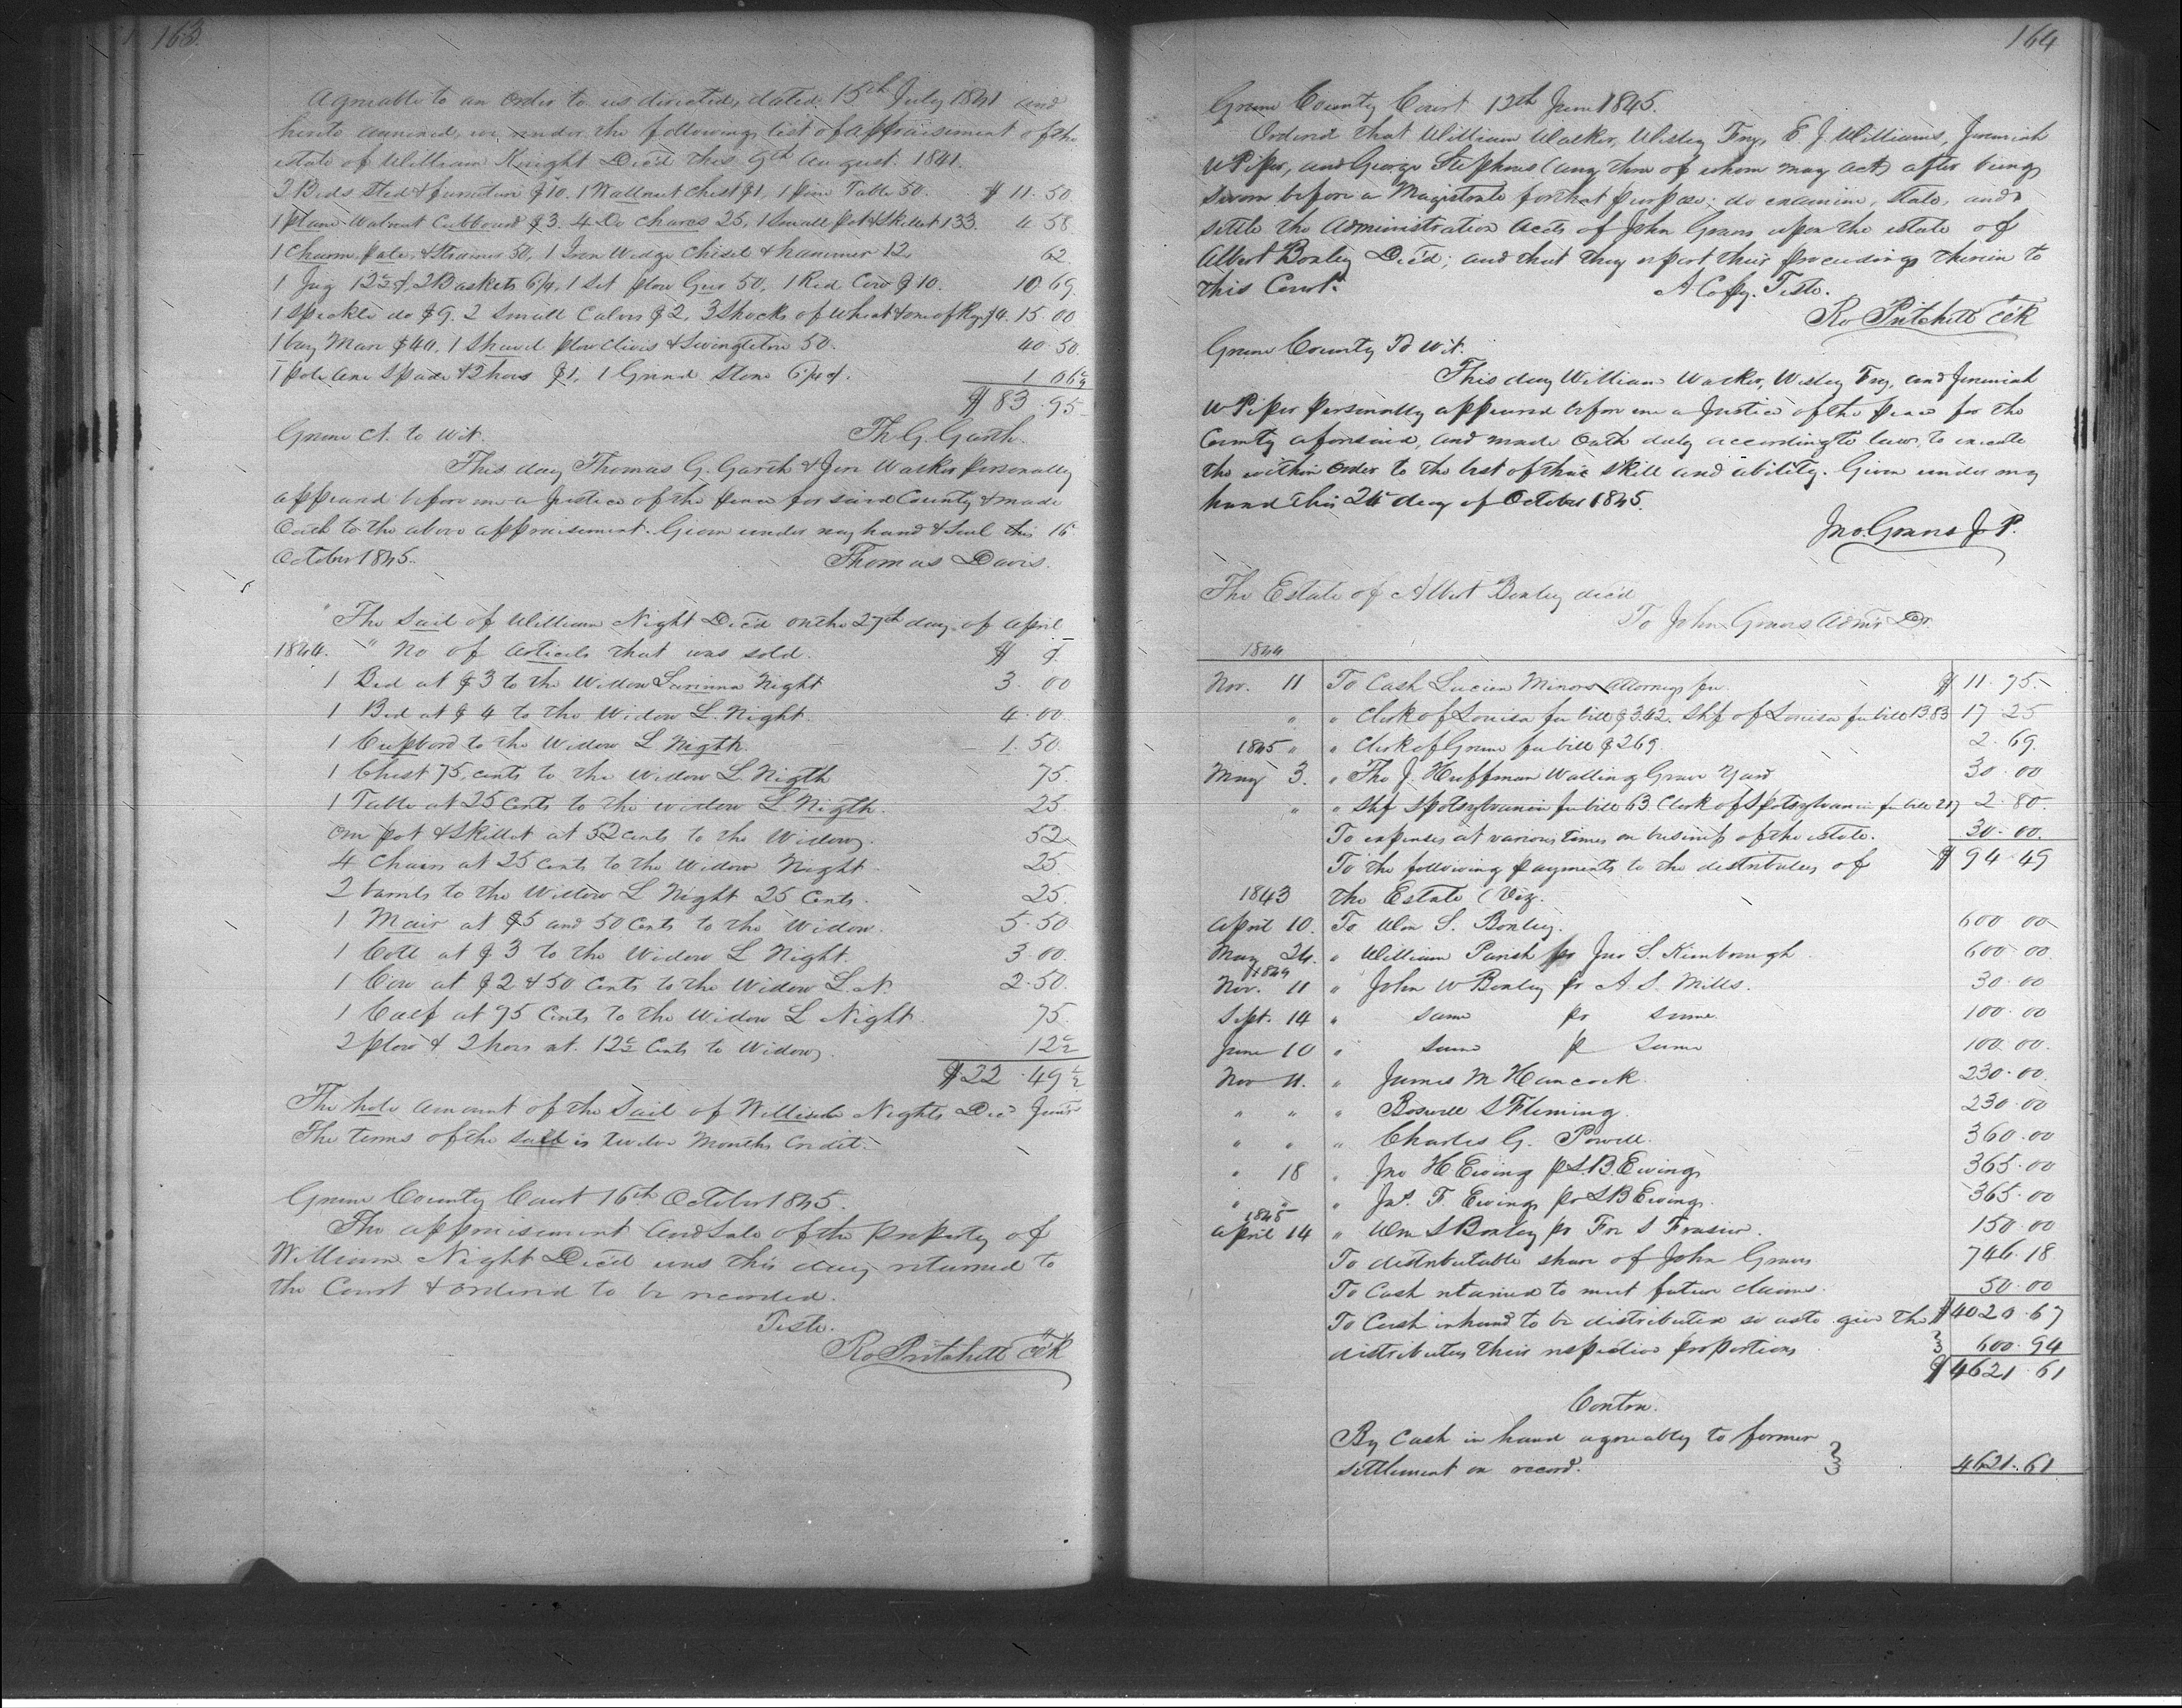 163.
Agreeable to an order to us directed, dated 15th July 1841 and
hereto annexed, we render the following list of appraisement of the
estate of William Knight Decd this 9th August. 1841.
2 Beds Sted & furniture $10. 1 Wallnut Chest $1. 1 pine Table 50. $ 11.50
1 plane Walnut Cubboard $3. 4 Do chares 25, 1 Small pot & Skillet 133. 4.58
1 Churn, pale, & Strainer 50, 1 Iron Wedge Chisel & hammer 12, 62.
1 Jug 12½ ȼ, 2 Baskets 6¼, 1 Set plow Gear 50, 1 Red Cow $10. 10.69
1 Speckle do $9. 2 Small Calves $2, 3 Shocks of Wheat & one of Rye $4. 15.00
1 bay Mare $40, 1 Shovel plow Clivis & Swingletree 50. 40.50.
1 pole axe Spade & 2 hoes $1, 1 Grind Stone 6¼ ȼ. 1 06½
$ 83.95
Greene Ct. to Wit. Th G. Garth.
This day Thomas G. Garth & Jere Walker personally
appeared before me a Justice of the peace for said County & made
Oath to the above appraisement. Given under my hand & Seal this 16
October 1845. Thomas Davis.
" The Sail of William Night Decd on the 27th day of April
1844. " No of Articels that was sold. $ ȼ
1 Bed at $3 to the Widow Lavinna Night 3.00
1 Bed at $4 to the Widow L. Night. 4.00.
1 Cupbord to the Widow L Nigth. 1.50.
1 Chest 75, cents to the Widow L. Nigth 75.
1 Table at 25 Cents to the widow L. Nigth. 25.
One pot & Skillet at 52 cents to the Widow. 52
4 Chairs at 25 Cents to the Widow Night 25.
2 barrels to the Widow L Night 25 Cents. 25.
1 Mair at $5 and 50 Cents to the Widow. 5.50
1 Colt at $3 to the Widow L Night. 3.00.
1 Cow at $2 & 50 Cents to the Widow L. N. 2.50.
1 Calf at 75 Cents to the Widow L Night. 75.
2 plow & 2 hoes at. 12½ Cents to Widow. 12½
$22.49½
The hole amount of the Sail of William Nights Decd
The terms of the sail is twelve Months Credit.
Greene County Court 16th October 1845.
The appraisement and Sale of the property of
William Night Decd was this day returned to
the Court & ordered to be recorded.
Teste.
Ro Pritchett Clk
164
Greene County Court 12th June 1845.
Ordered that William Walker, Wesley Fry, E J. Williams, Jeremiah
W Piper, and George Stephens (any three of whom may act) after being
sworn before a Magistrate for that purpose; do examine, state, and
settle the Administration Accts of John Graves upon the estate of
Albert Boxley Decd; and that they report their proceedings therein to
this Court. A Copy. Teste.
Ro Pritchett Clk
Greene County To Wit.
This day William Walker, Wesley Fry, and Jeremiah
W Piper personally appeared before me a Justice of the peace for the
County aforesaid, and made Oath duly according to law, to execute
the within order to the best of their skill and ability. Given under my
hand this 24 day of October 1845.
Jno. Graves J. P.
The Estate of Albert Boxley decd
To John Graves Admr Dr.
1844
Nov. 11 To Cash Lucian Minors Attorneys fee. $ 11.75.
" " Clerk of Louisa fee bill $3.42. Shff of Louisa fee bill 13.83 17.25
1845 " " Clerk of Greene fee bill $2.69. 2.69.
May 3. " Tho J. Huffman Walling Grave Yard 30.00
" " Shff Spotsylvania fee bill 63. Clerk of Spotsylvania fee bill 217 2.80.
To expenses at various times on business of the estate. 30.00.
To the following payments to the distributees of $ 94.49
1843 the Estate (Viz.
April 10. To Wm S. Boxley. 600 00
May 24. " William Parish pr Jno S. Kimbrough. 600.00.
1844
Nov. 11 " John W Boxley pr A. S. Mills. 30.00
Sept. 14 " Same pr Same. 100.00
June 10 " Same pr Same 100.00.
Nov 11. " James M Hancock. 230.00.
" " " Boswell S Fleming. 230.00
" " " Charles G. Powell. 360.00
" 18 " Jno H Ewing pr S. B. Ewing 365.00
" " " Jas. F. Ewing pr S B Ewing. 365.00
1845
April 14 " Wm S Boxley pr Fr S Frasier. 150.00
To distributable share of John Graves 746.18
To Cash retained to meet future claims. 50.00
To Cash in hand to be distributed so as to give the $4020.67
distributees their respective proportions } 600.94
$4621.61
Contra.
By Cash in hand agreeably to former
settlement on record. } 4621.61